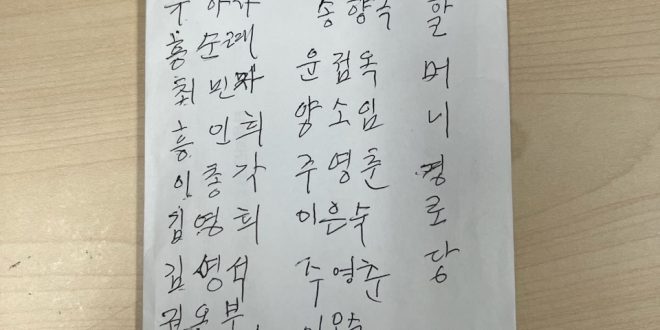 송향옥
홍순례
윤점옥
최민자
양소임
홍인희
주영춘
이종각
김영희
이은숙
김영석
주영춘
할머니경로당